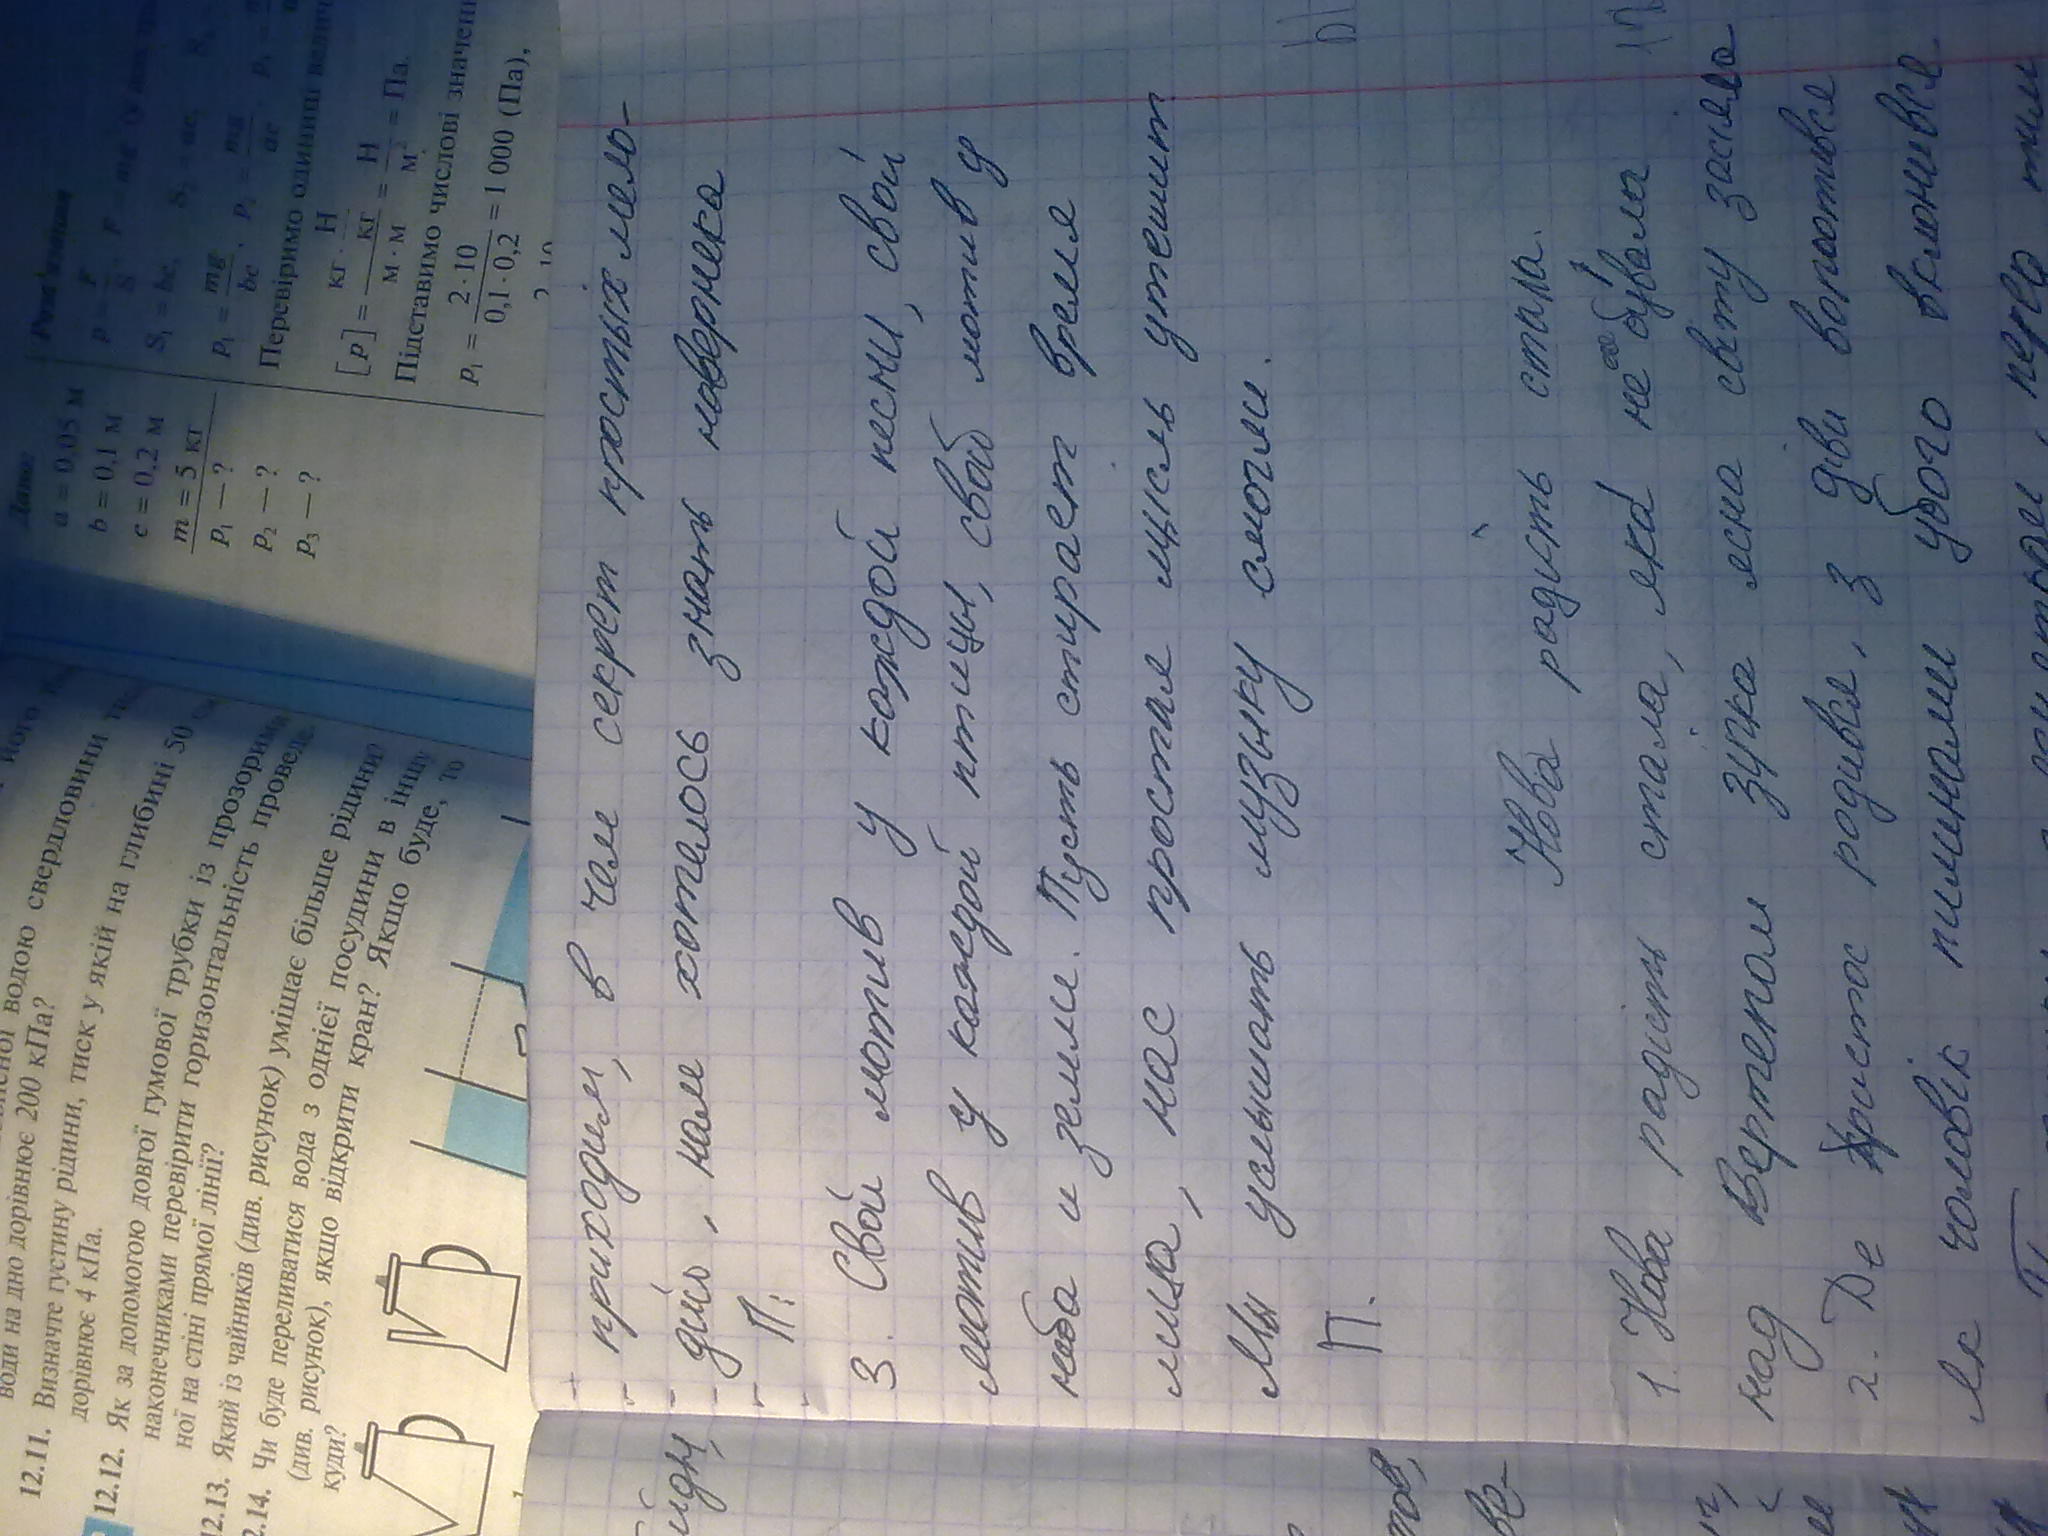 води на дно дорівнює 200 кПа?
12.11. Визначте густину рідини, тиск у якій на глибині 50
дорівнює 4 кПа.
12.12. Як за допомогою довгої гумової трубки із прозорими
наконечниками перевірити горизонтальність проведе-
ної на стіні прямої лінії?
12.13. Який із чайників (див. рисунок) уміщає більше рідини?
2.14. Чи буде переливатися вода з однієї посудини в іншу
(див. рисунок), якщо відкрити кран? Якщо буде, то
куди?
a = 0,05 м
b = 0,1 м
c = 0,2 м
m = 5 кг
p₁ — ?
p₂ — ?
p₃ — ?
S₁ = bc,
p₁ = mg/bc, p₂ = mg/ac,
Перевіримо одиниці
[p] = (кг · Н/кг)/(м · м) = Н/м² = Па.
Підставимо числові значен
p₁ = (2 · 10)/(0,1 · 0,2) = 1 000 (Па),
приходим, в чем секрет простых мело-
дий, нам хотелось знать наверняка
П:
3. Свой мотив у каждой песни, свой
мотив у каждой птицы, свой мотив у
неба и земли. Пусть стирает время
лица, нас простая мысль утешит
Мы услышать музыку смогли.
П.
Нова радість стала.
1. Нова радість стала, яка не бувала
над Вертепом зірка ясна світу засіяла
2. Де Христос родився, з діви воплотився
Як чоловік пиленами убого вклонився